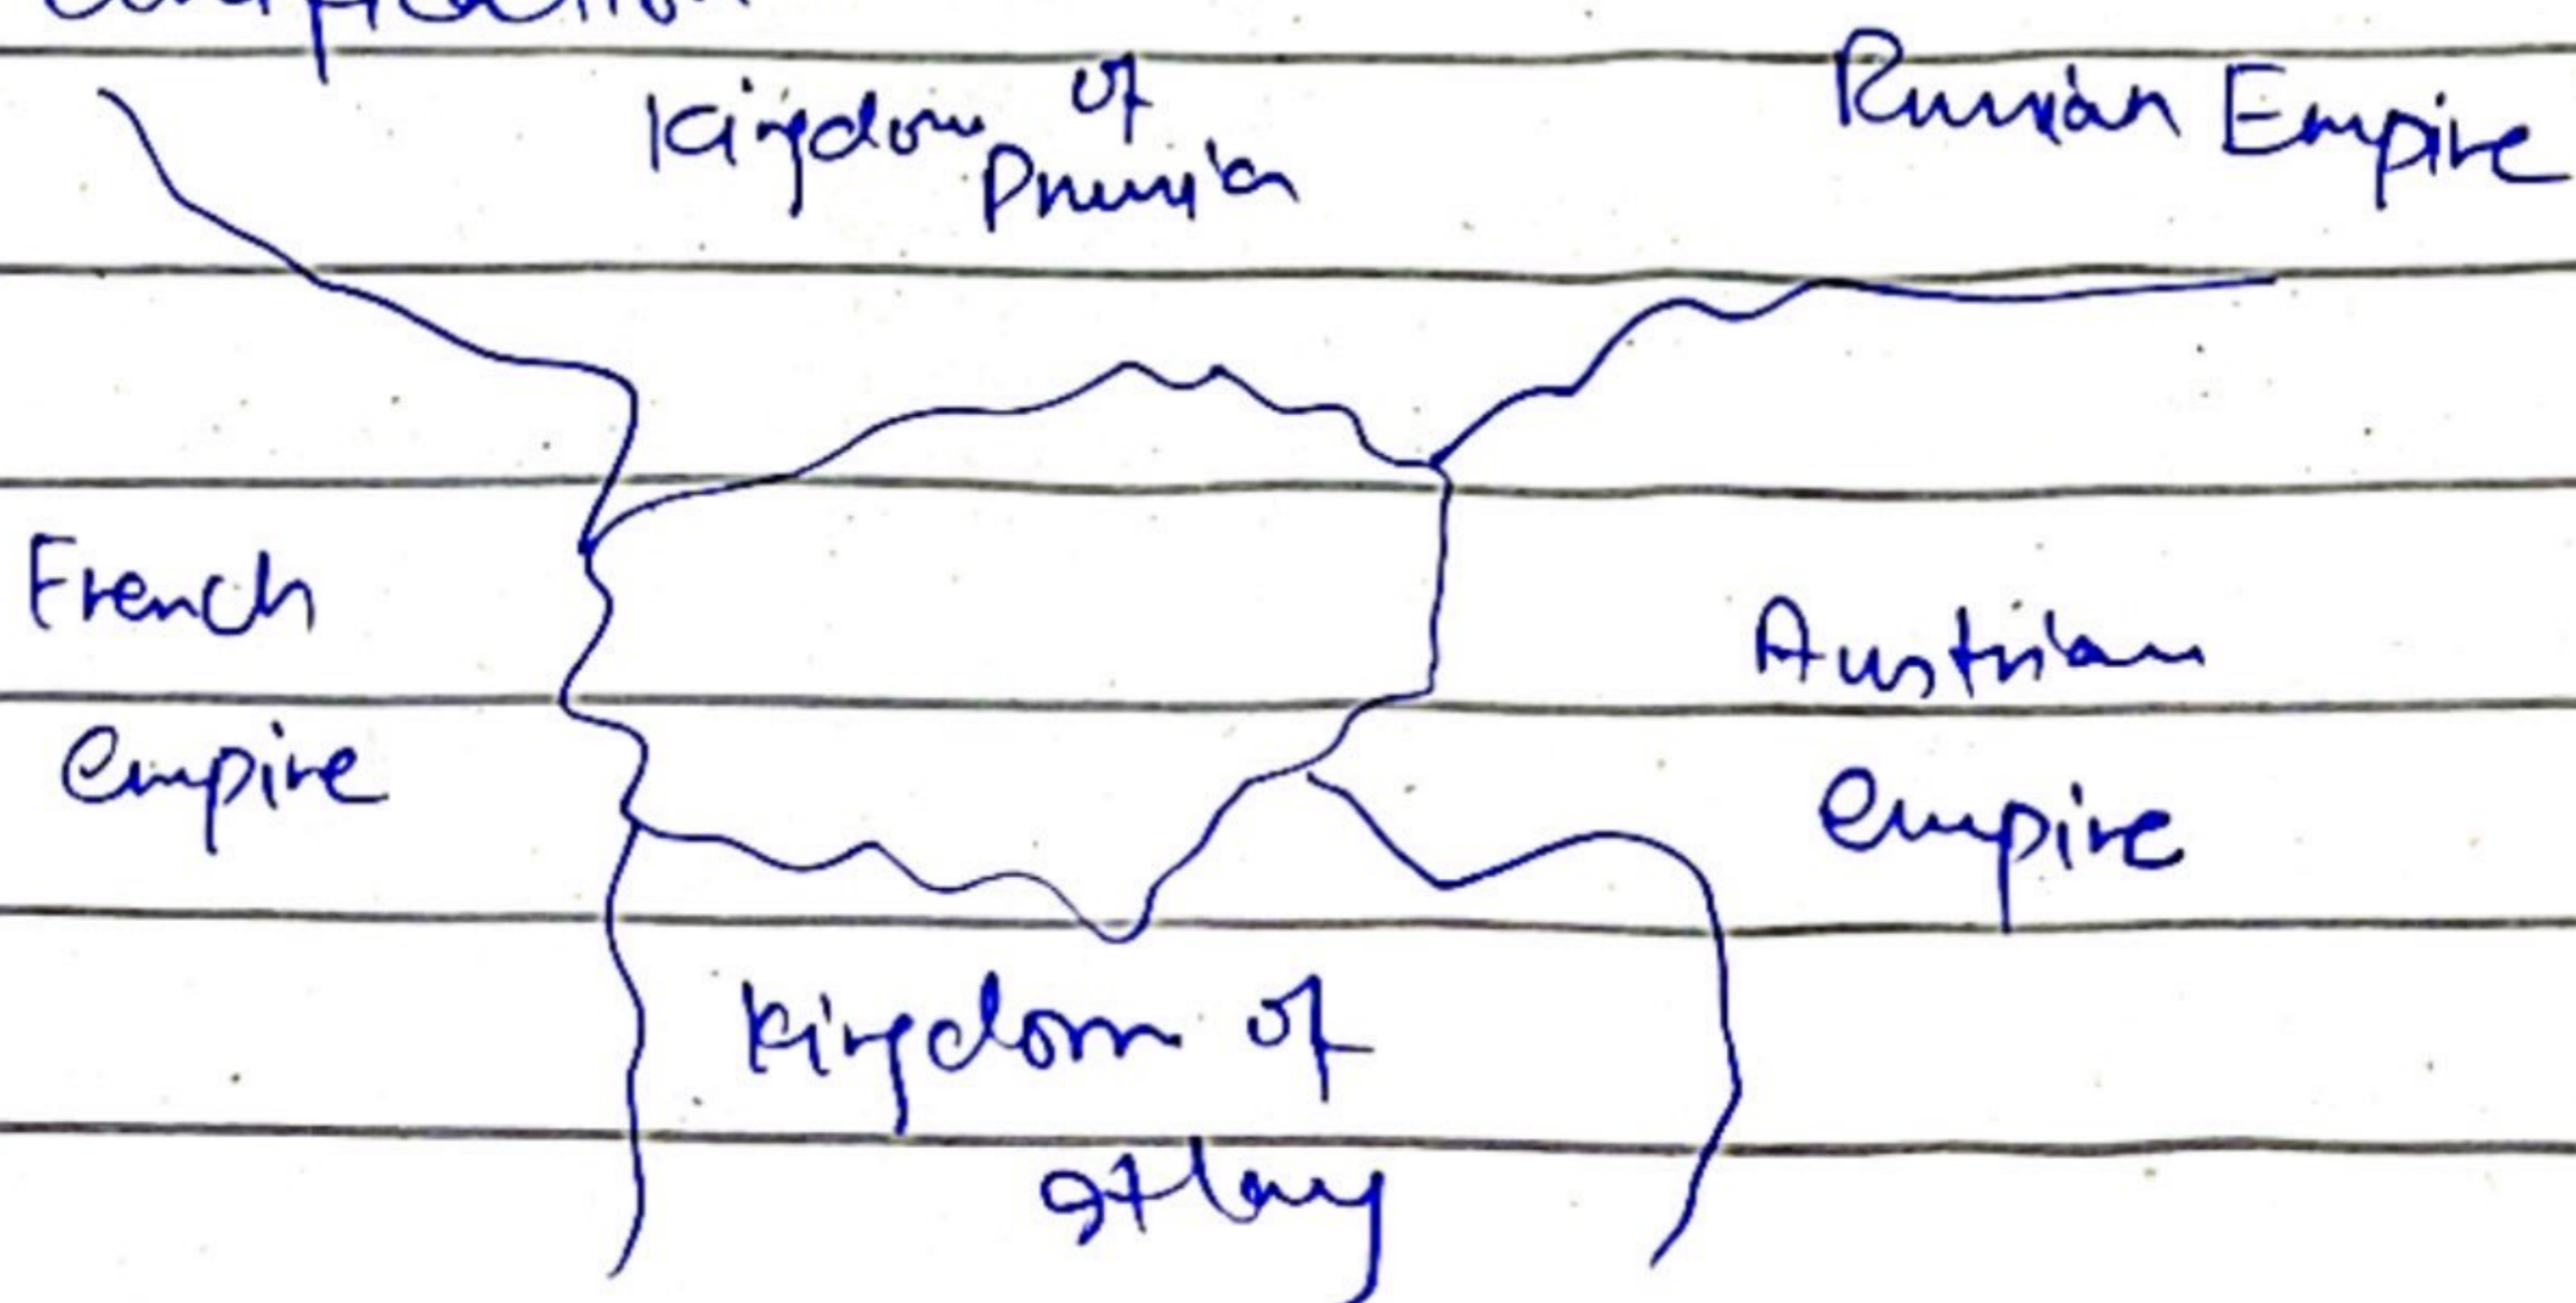 Kingdom of
Prussia
Russian Empire
French
Empire
Austrian
Empire
Kingdom of
Itlay